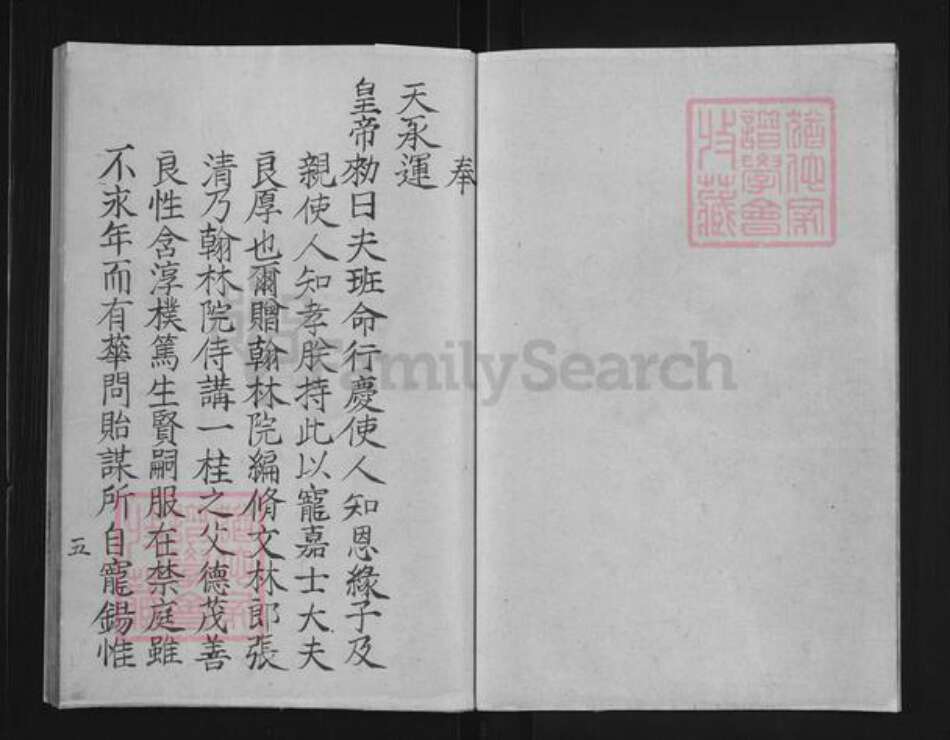 奉
天承運
皇帝勅曰夫班命行慶使人知恩緣子及
親使人知孝朕持此以寵嘉士大夫
良厚也爾贈翰林院編脩文林郎張
清乃翰林院侍講一桂之父德茂善
良性含淳樸篤生賢嗣服在禁庭雖
不求年而有蕐問貽謀所自寵錫惟
五
FamilySearch